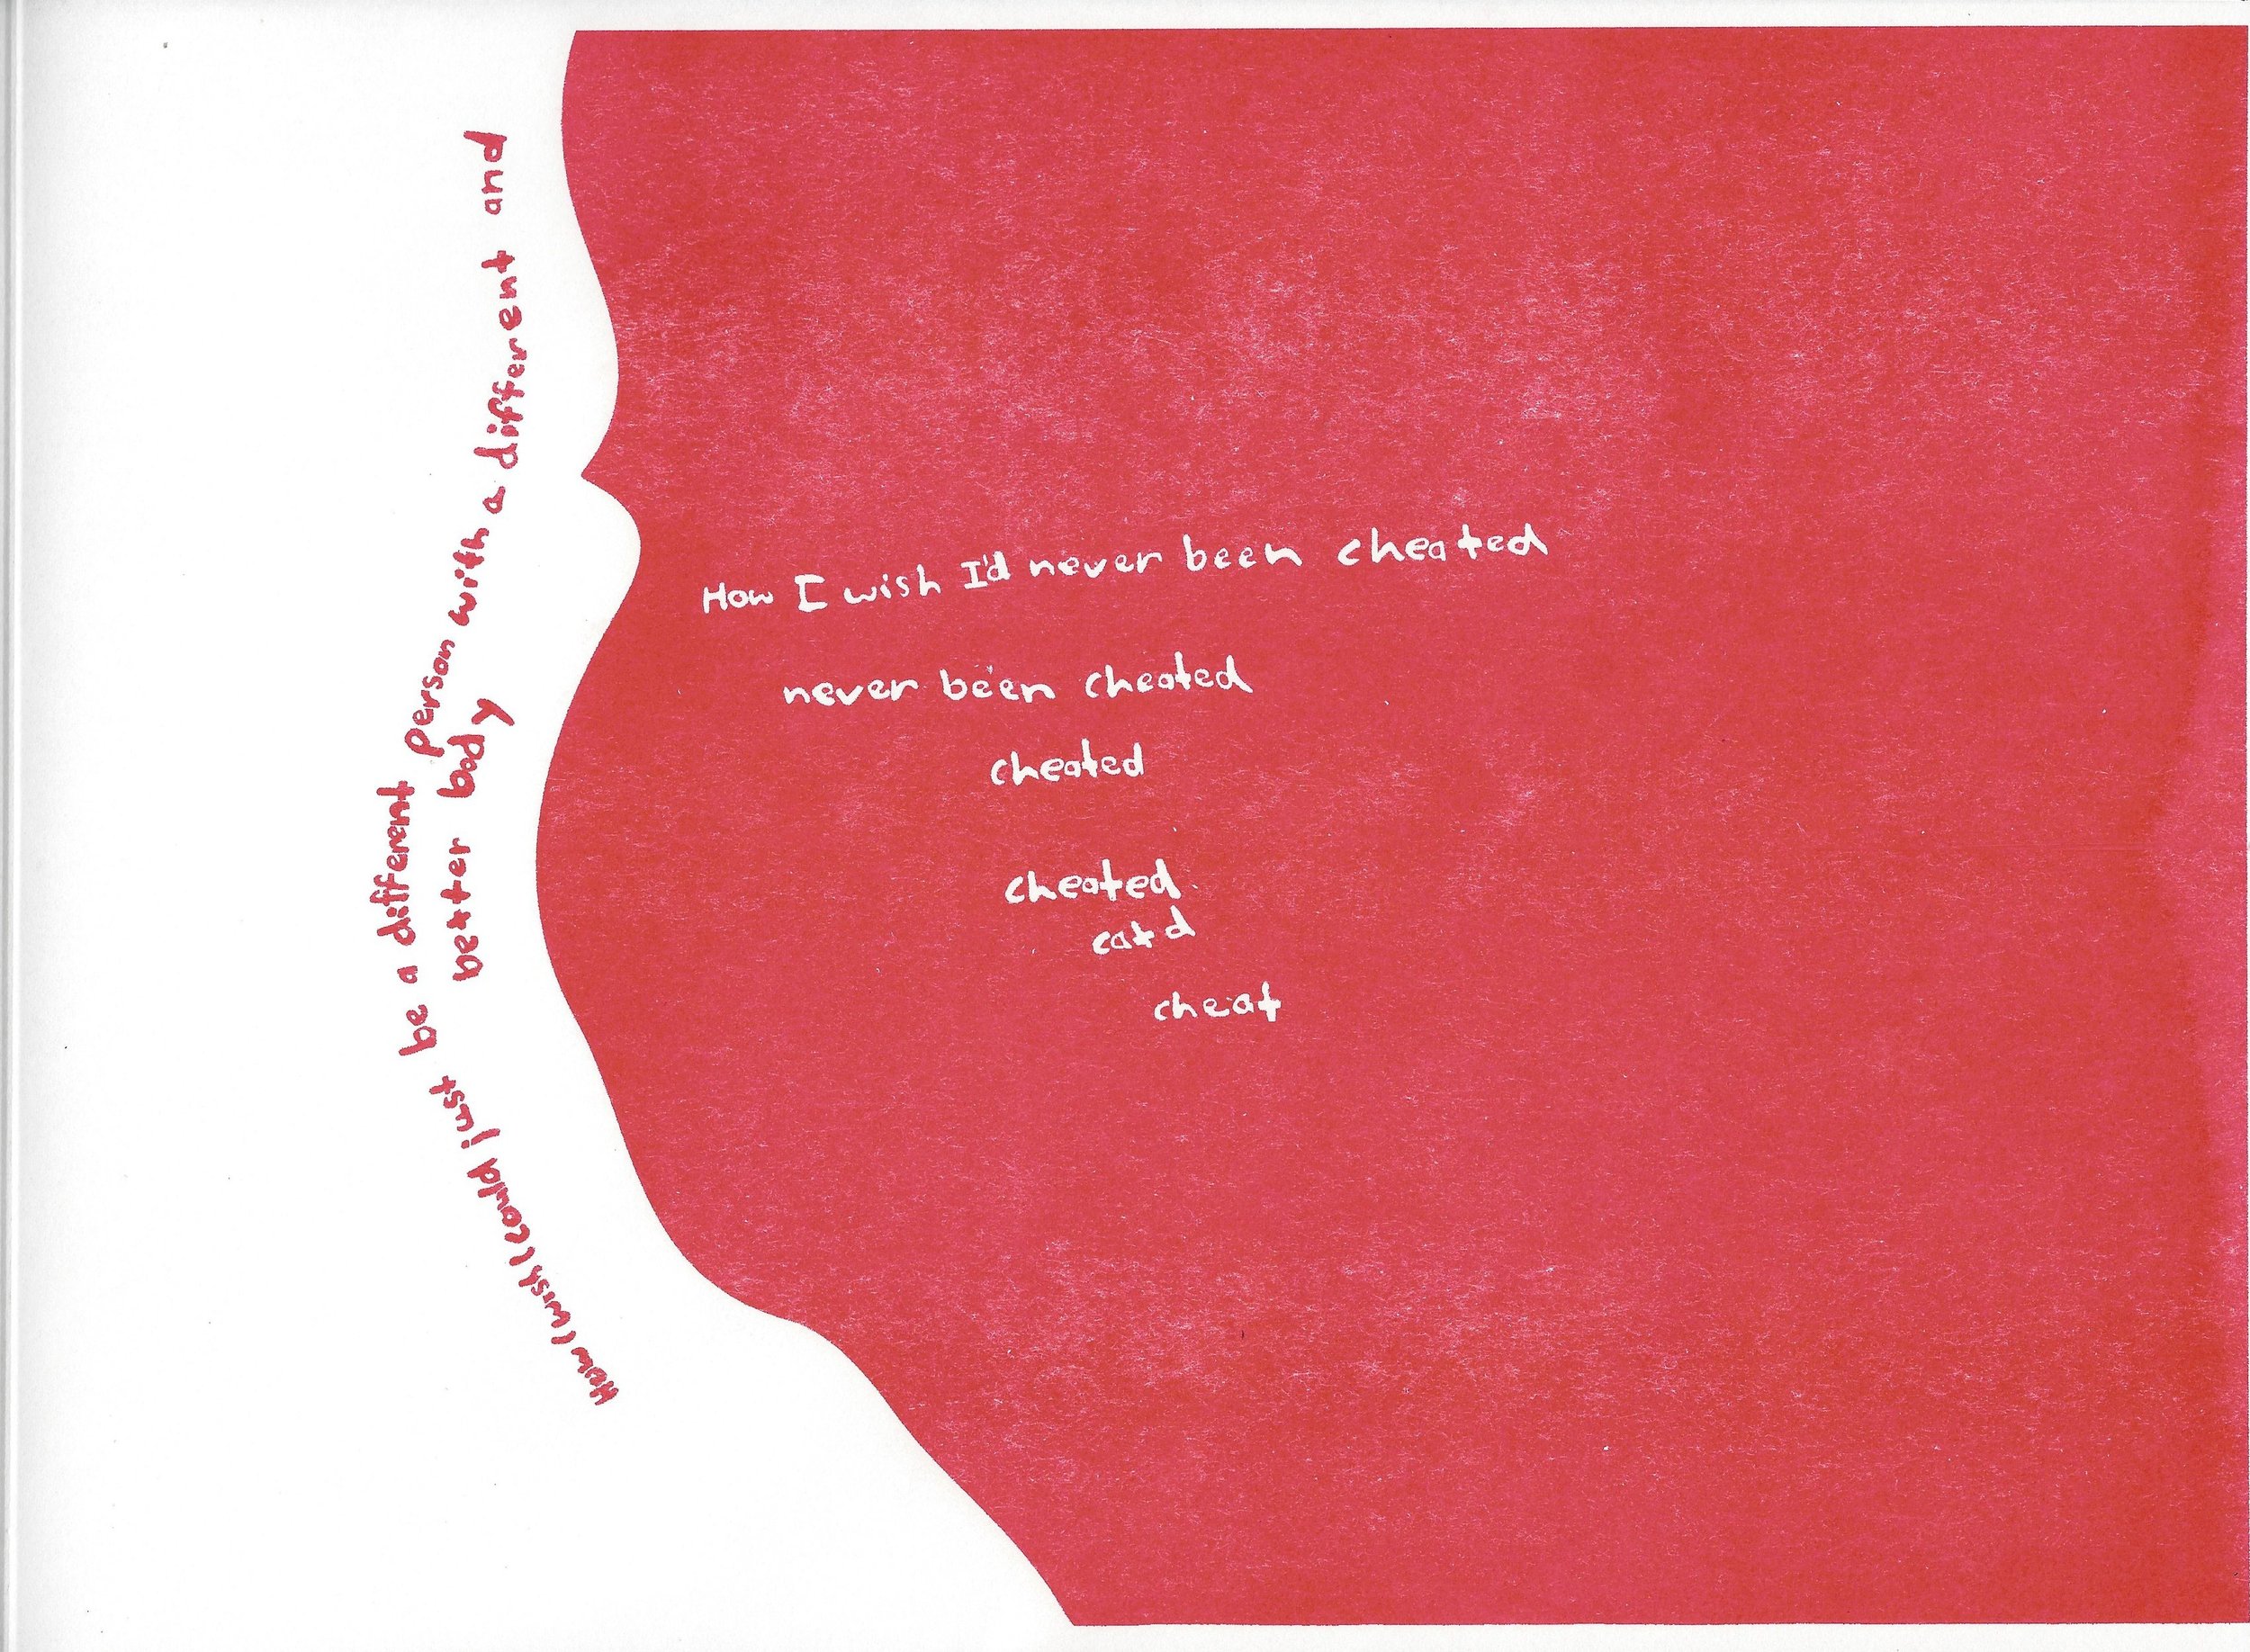 How I wish I could just be a different person with a different and
better body
How I wish I'd never been cheated
never been cheated
cheated
cheated
catd
cheat